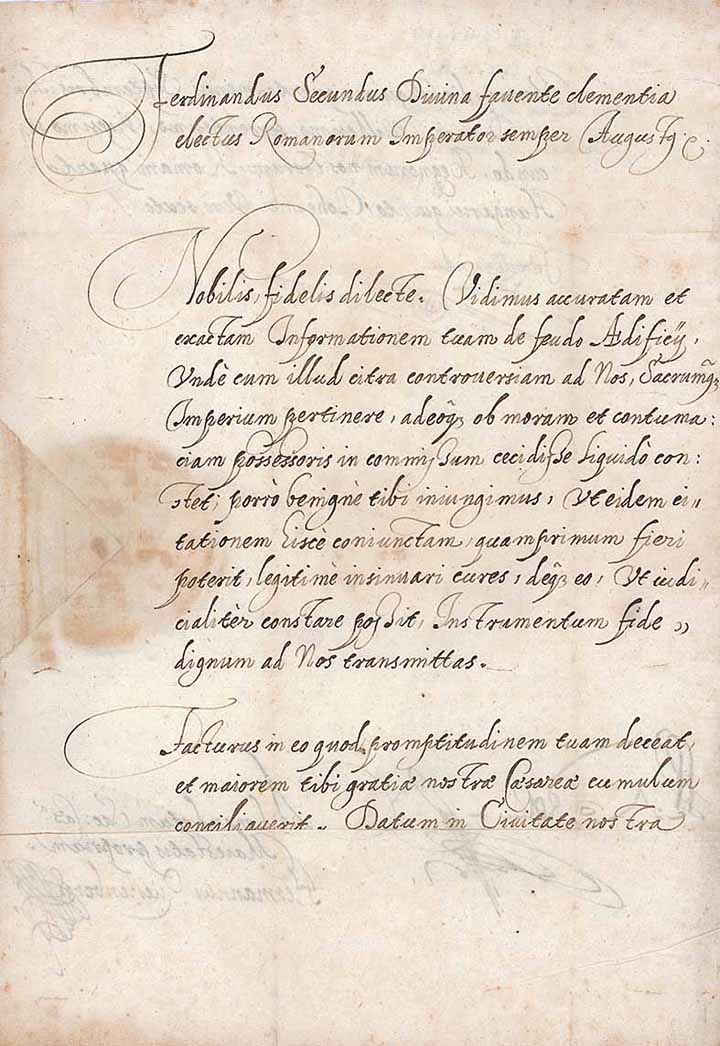 Ferdinandus Secundus Divina favente clementia
electus Romanorum Imperator semper Augustq; &c.
Nobilis, fidelis dilecte. Vidimus accuratam et
exactam Informationem tuam de feudo Ædificij,
Vndè cum illud citra controversiam ad Nos, Sacrumq;
Imperium pertinere, adeoq; ob moram et contuma:
ciam possessoris in commissum cecidisse liquidò con:
stet; porrò benignè tibi iniungimus, Vt eidem ci„
tationem hiscè coniunctam, quamprimum fieri
poterit, legitimè insinuari cures, deq; eo, Vt iudi„
cialitèr constare possit, Instrumentum fide „
dignum ad Nos transmittas.
Facturus in eo quod promptitudinem tuam deceat,
et maiorem tibi gratiæ nostræ Cæsareæ cumulum
conciliaverit. Datum in Civitate nostra